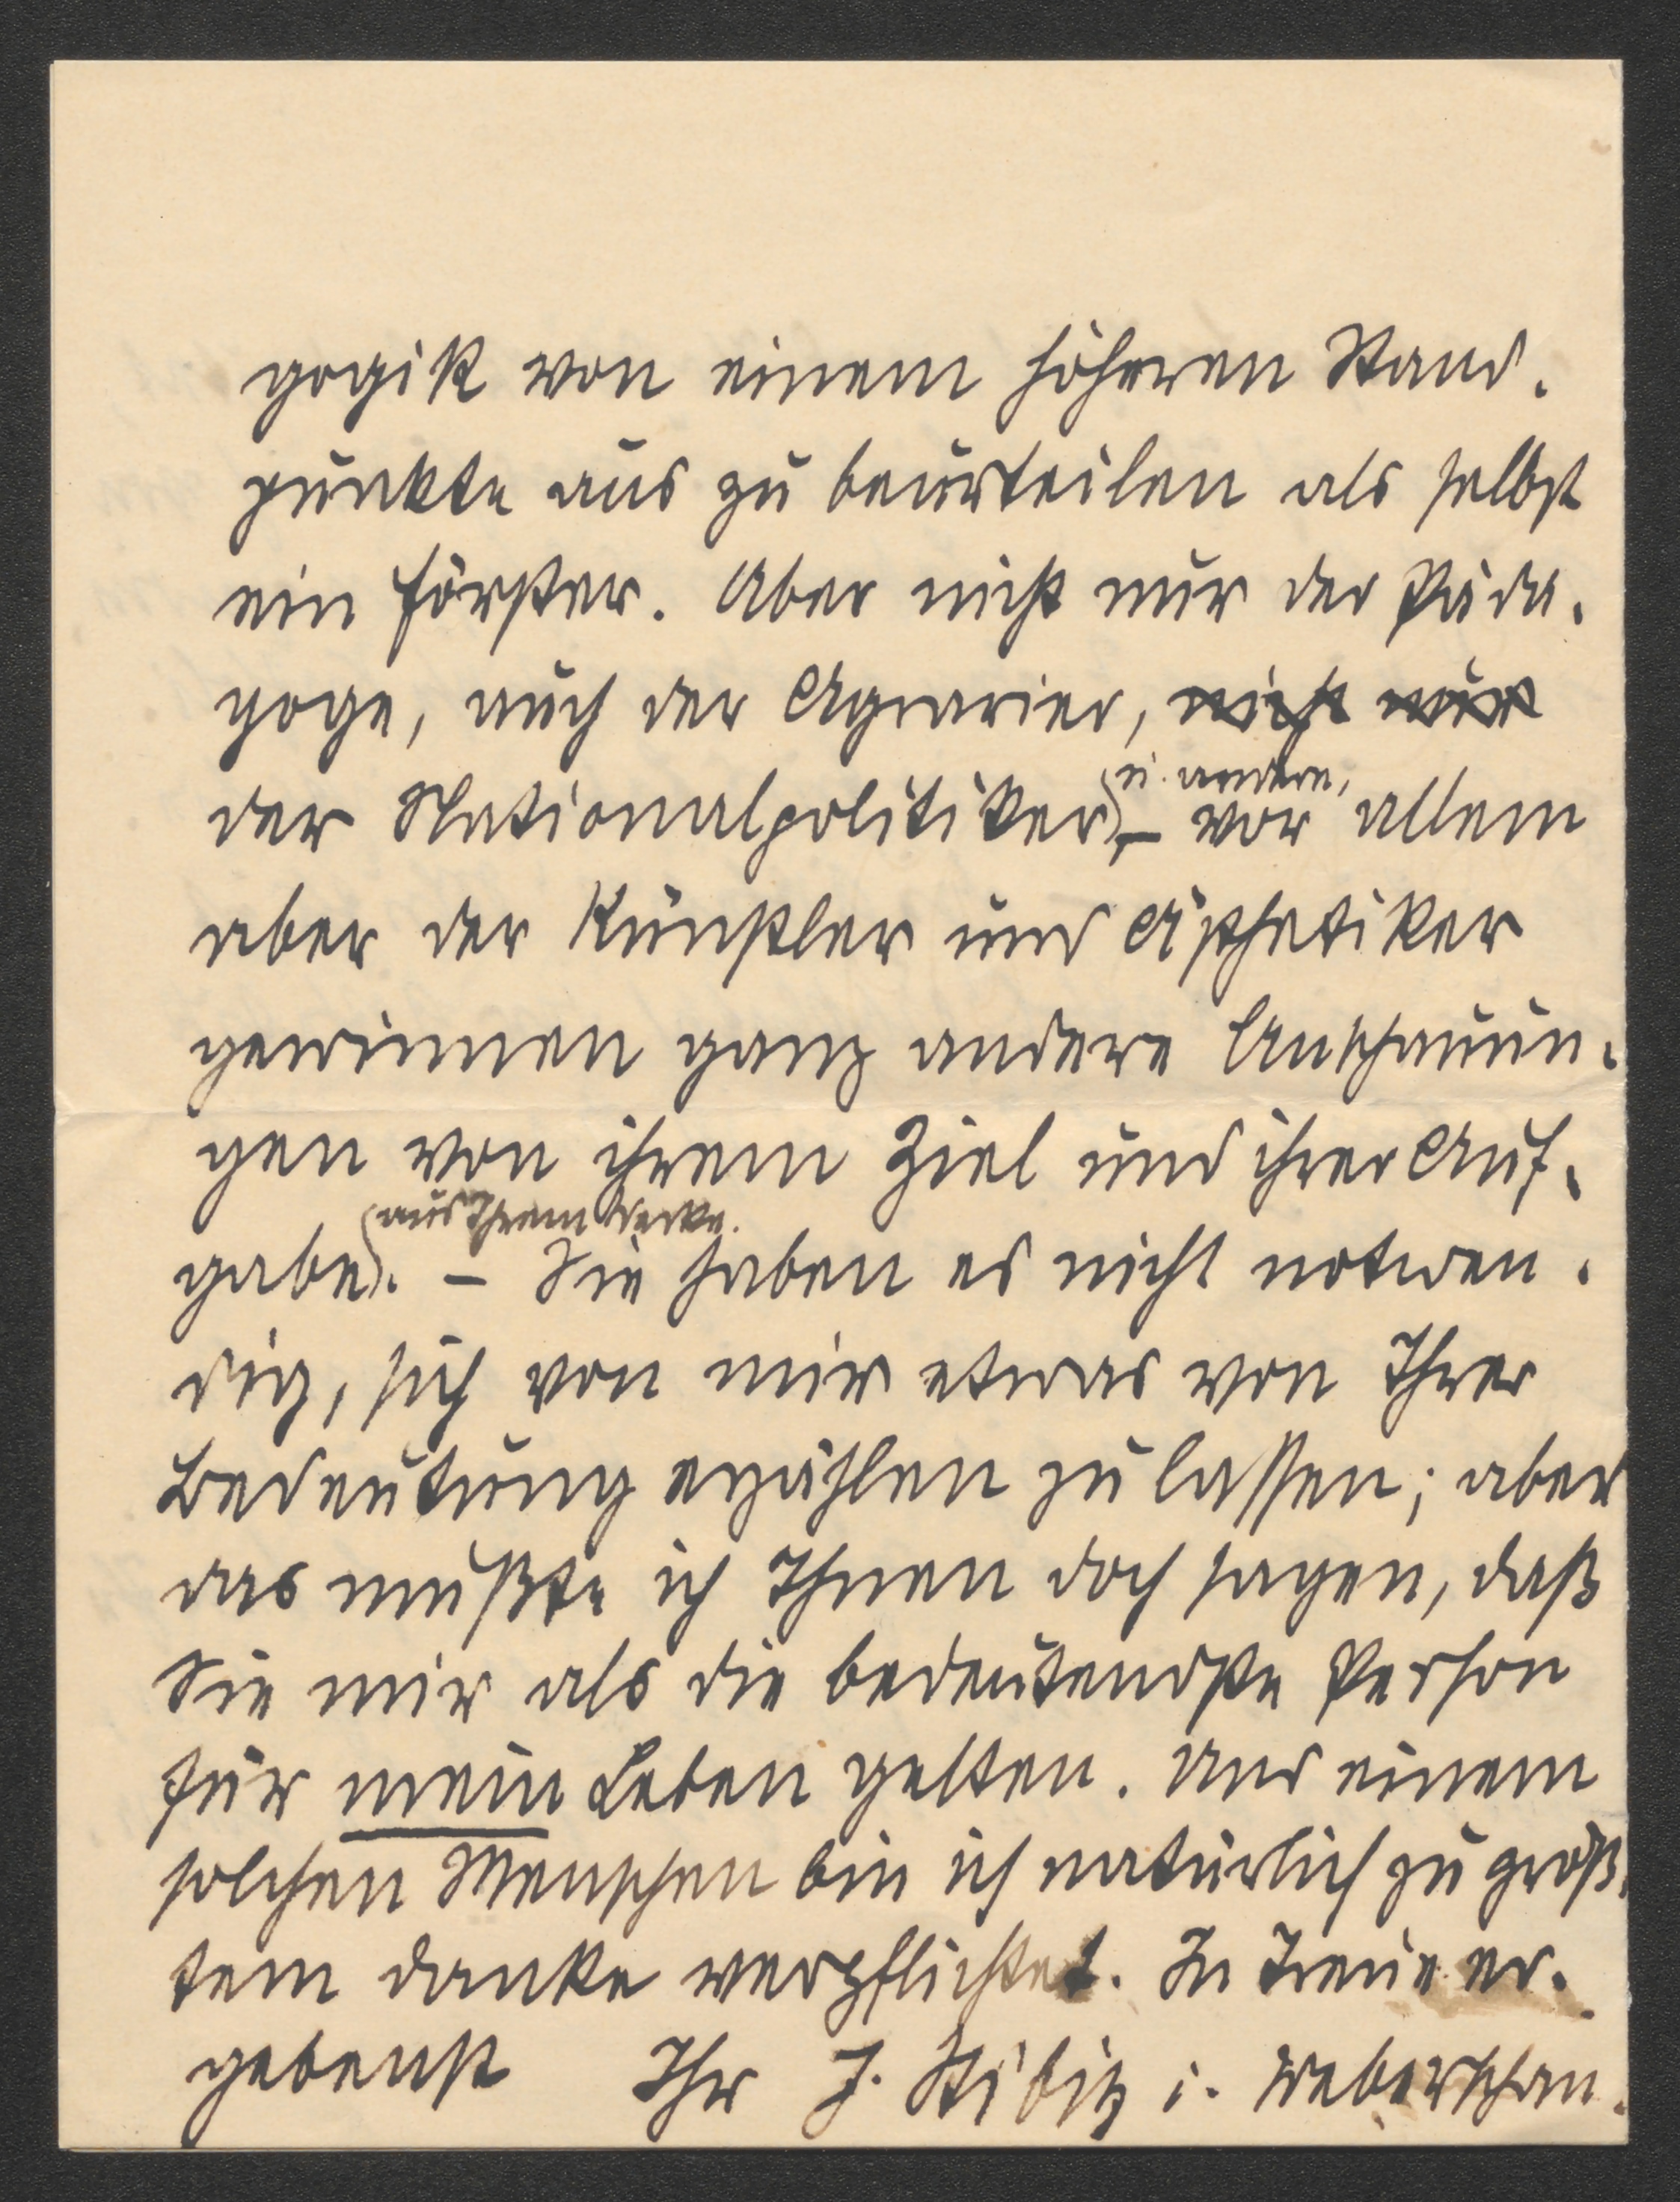 gogik von einem höheren Stand-
punkte aus zu beurteilen als selbst
ein Förster. Aber nicht nur der Päda-
goge, auch der Agrarier, nicht nur
der Nationalpolitiker, u. andere, – vor allem
aber der Künstler und Ästhetiker
gewinnen ganz andere Anschauun-
gen von ihrem Ziel und ihrer Auf-
gabe aus Ihrem Werke. – Sie haben es nicht notwen-
dig, sich von mir etwas von Ihrer
Bedeutung erzählen zu lassen; aber
das mußte ich Ihnen doch sagen, daß
Sie mir als die bedeutendste Person
für mein Leben gelten. Und einem
solchen Menschen bin ich natürlich zu größ-
tem Danke verpflichtet. In Treue er-
gebenst Ihr J. Stibitz i. Weberschan.